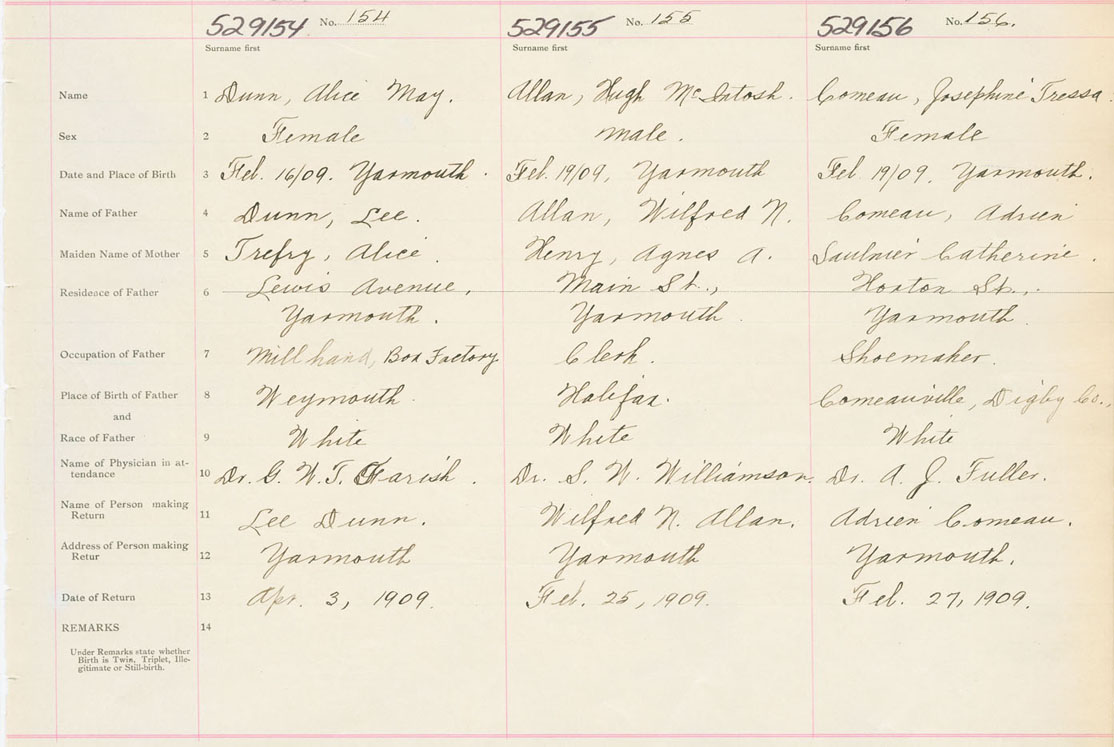 529154 No. 154 529155 No. 155 529156 No. 156.
Surname first Surname first Surname first
Name 1 Dunn, Alice May. Allan, Hugh McIntosh. Comeau, Josephine Tressa.
Sex 2 Female Male. Female
Date and Place of Birth 3 Feb. 16/09. Yarmouth. Feb. 19/09, Yarmouth Feb. 19/09. Yarmouth.
Name of Father 4 Dunn, Lee. Allan, Wilfred N. Comeau, Adrien
Maiden Name of Mother 5 Trefry, Alice. Henry, Agnes A. Saulnier Catherine.
Residence of Father 6 Lewis Avenue, Main St., Horton St.,
Yarmouth. Yarmouth. Yarmouth.
Occupation of Father 7 Mill hand, Box Factory Clerk. Shoemaker.
Place of Birth of Father 8 Weymouth. Halifax. Comeauville, Digby Co.,
and
Race of Father 9 White White White
Name of Physician in at-
tendance 10 Dr. G. W. T. Farish. Dr. S. W. Williamson, Dr. A. J. Fuller.
Name of Person making
Return 11 Lee Dunn. Wilfred N. Allan. Adrien Comeau.
Address of Person making
Retur 12 Yarmouth Yarmouth Yarmouth.
Date of Return 13 Apr. 3, 1909. Feb. 25, 1909. Feb. 27, 1909.
REMARKS 14
Under Remarks state whether
Birth is Twin, Triplet, Ille-
gitimate or Still-birth.